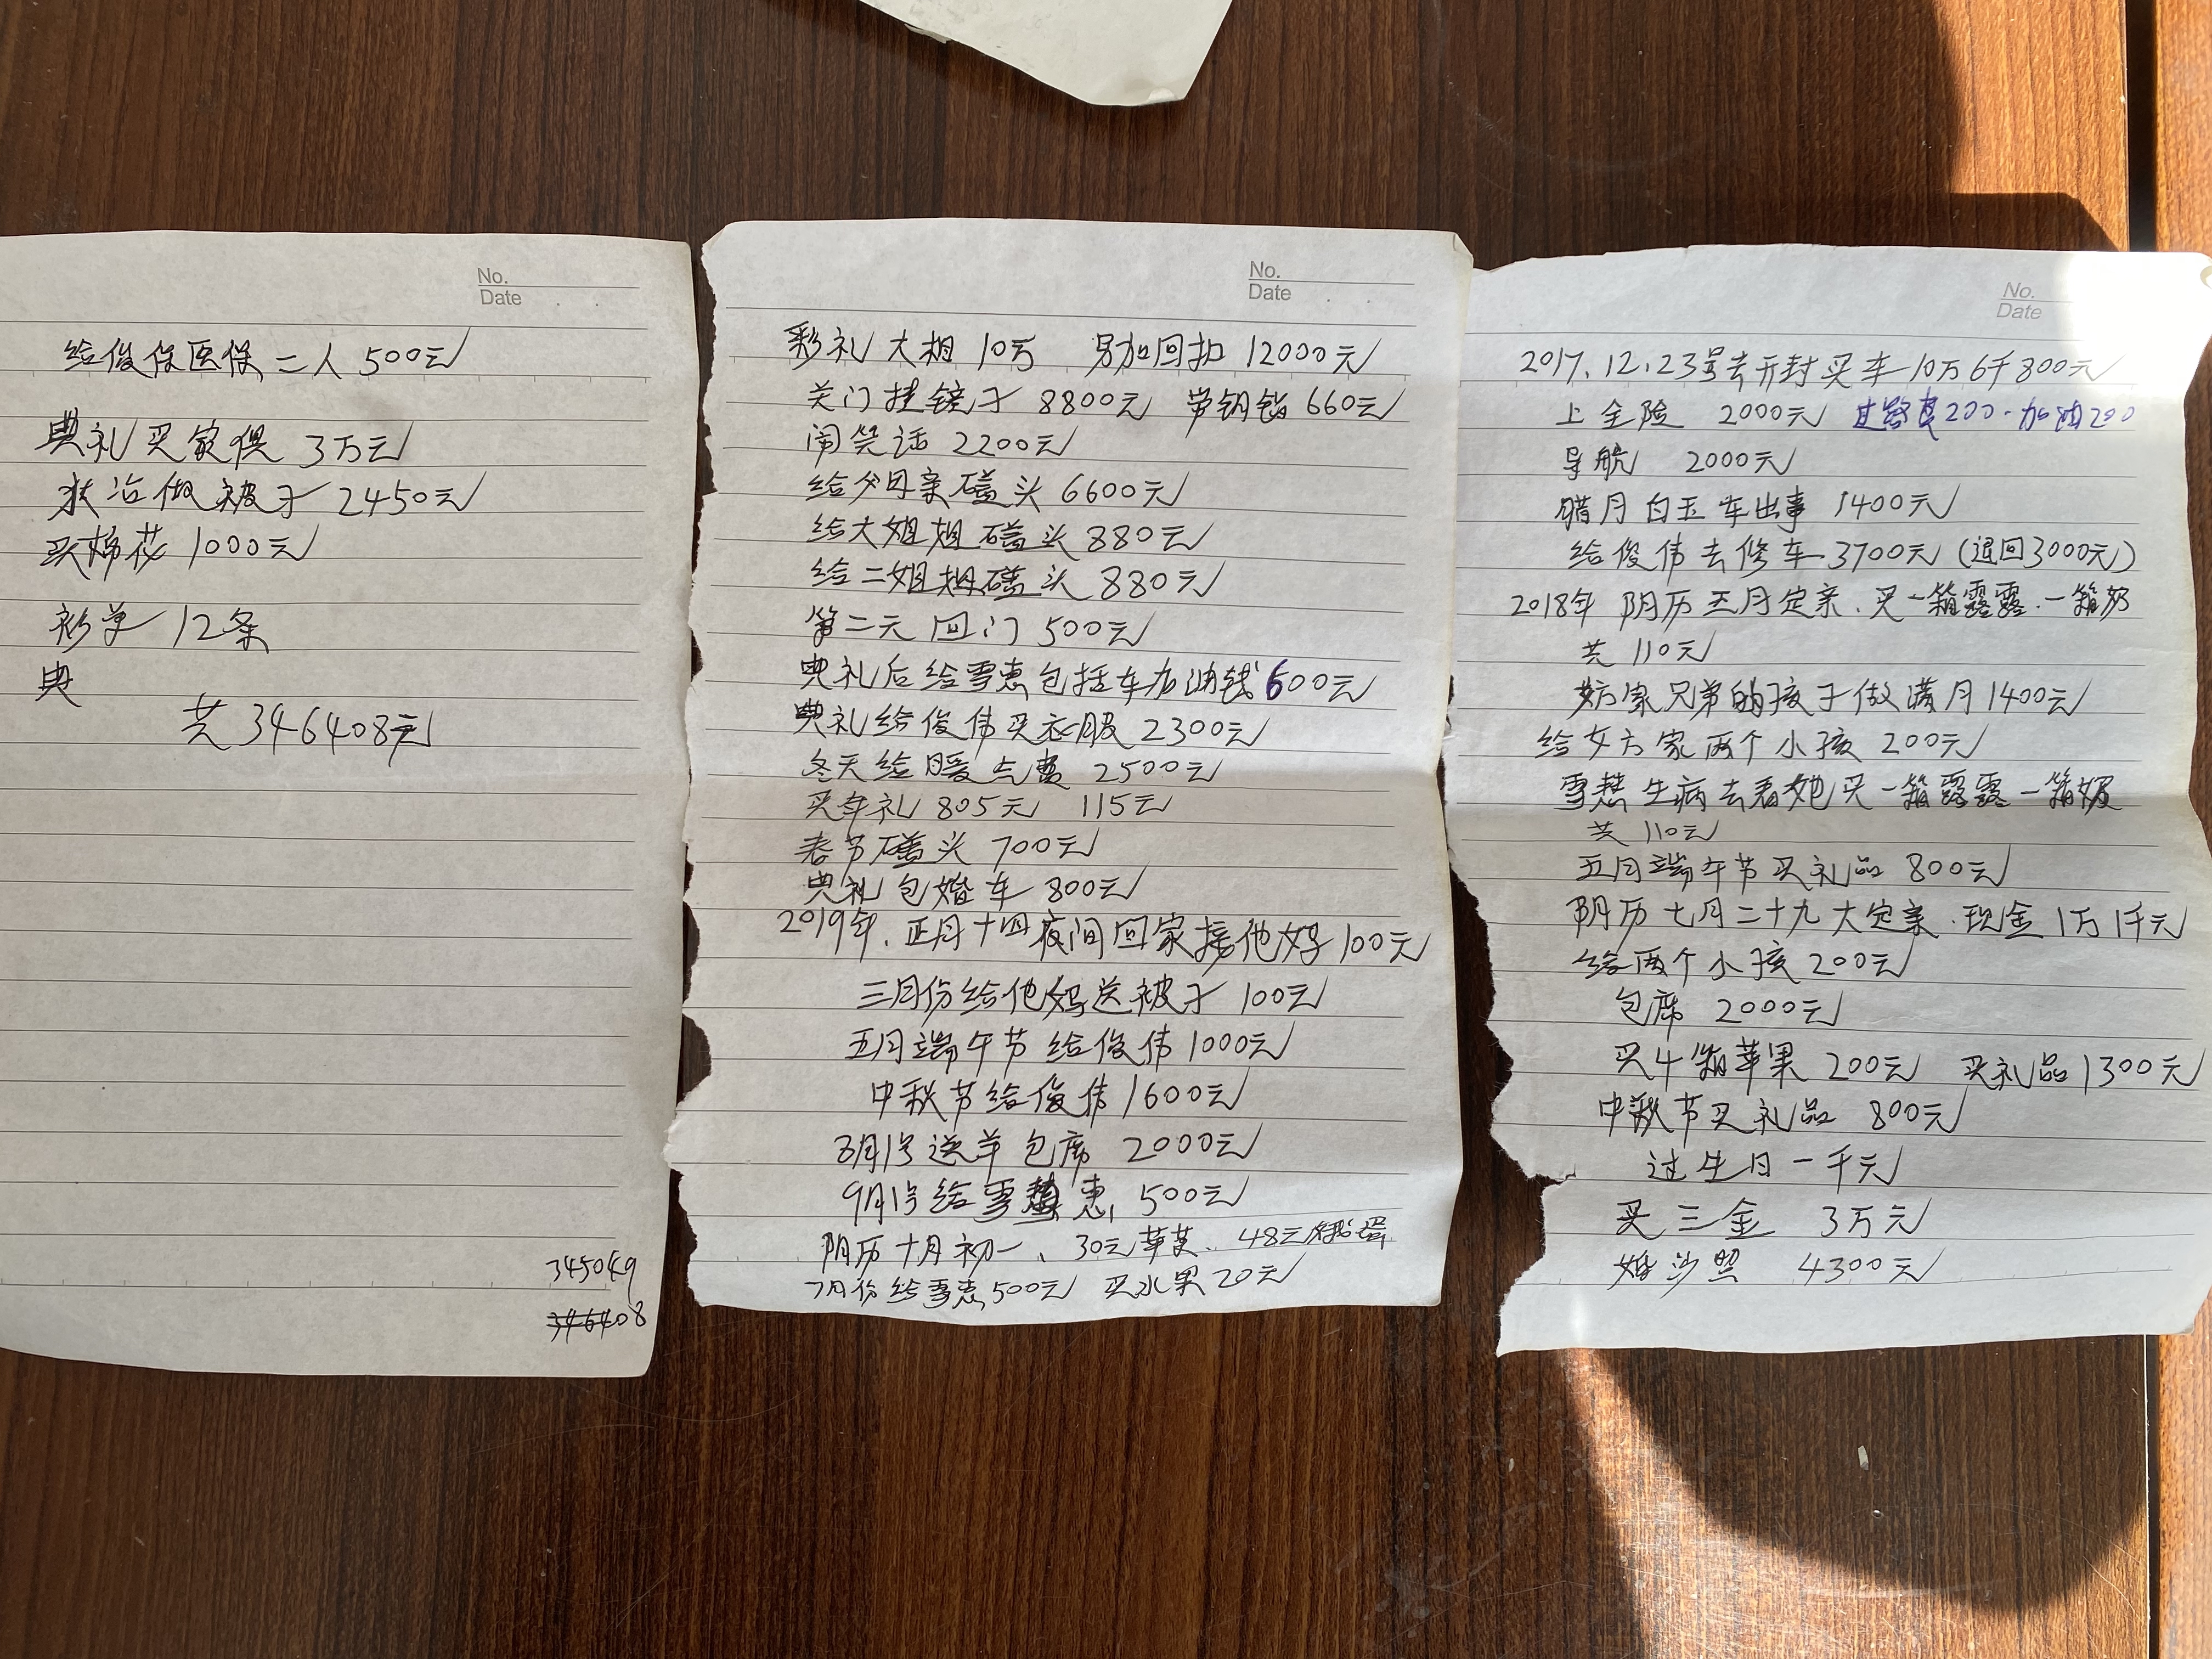 No.
Date
给俊保医保二人500元
典礼买家俱3万元
做被子2450元
买棉花1000元
衫单12条
典
共346408元
345049
346408
No.
Date
彩礼大相10万 另加回扣12000元
关门挂镜子8800元 带钥匙660元
闹笑话2200元
给父母亲磕头6600元
给大姐姐磕头880元
给二姐姐磕头880元
第二天回门500元
典礼后给雪惠包括车加油钱600元
典礼给俊伟买衣服2300元
冬天给暖气费2500元
买年礼805元 115元
春节磕头700元
典礼包婚车800元
2019年.正月十四夜间回家接他妈100元
三月份给他妈送被子100元
五月端午节给俊伟1000元
中秋节给俊伟1600元
8月1号送羊包席2000元
9月1号给雪惠500元
阴历十月初一、30元苹果、48元
7月份给雪惠500元 买水果20元
No.
Date
2017.12.23号去开封买车10万6千800元
上全险 2000元 过路费200.加油200
导航 2000元
腊月白玉车出事 1400元
给俊伟去修车3700元(退回3000元)
2018年阴历五月定亲.买一箱露露.一箱奶
共110元
家兄弟的孩子做满月1400元
给女方家两个小孩200元
雪慧生病去看她买一箱露露一箱奶
共110元
五月端午节买礼品800元
阴历七月二十九大定亲.现金1万1千元
给两个小孩200元
包席2000元
买4箱苹果200元 买礼品1300元
中秋节买礼品 800元
过生日一千元
买三金 3万元
婚沙照 4300元